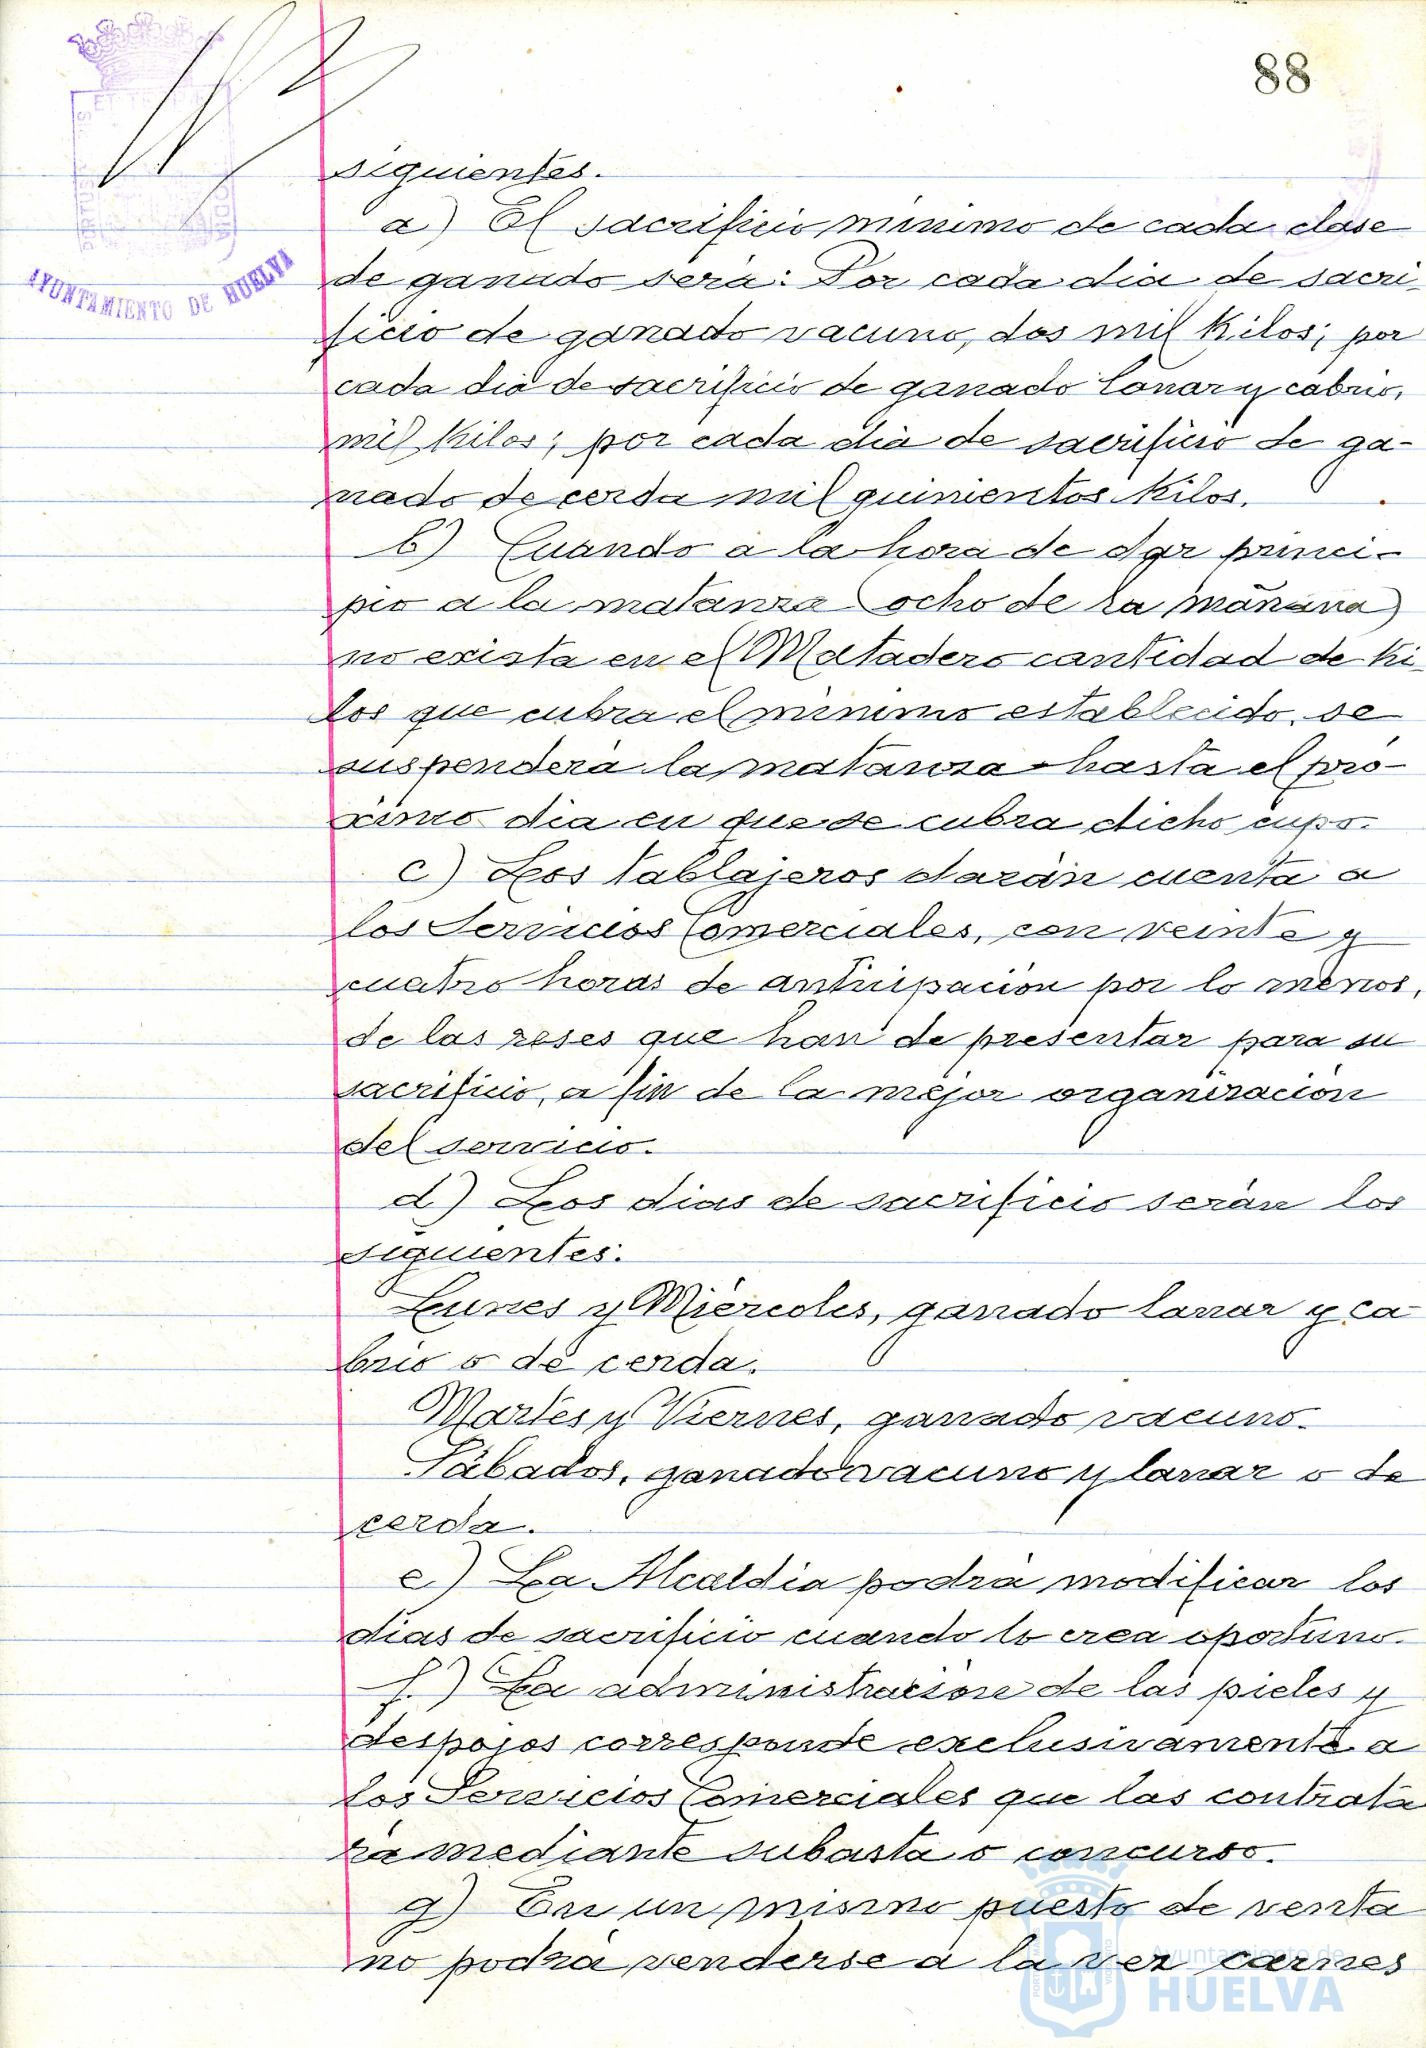 88
AYUNTAMIENTO DE HUELVA
siguientes.
a) El sacrificio minimo de cada clase
de ganado será: Por cada dia de sacri-
ficio de ganado vacuno, dos mil Kilos; por
cada dia de sacrificio de ganado lanar y cabrio,
mil Kilos; por cada dia de sacrificio de ga-
nado de cerda mil quinientos Kilos.
b) Cuando a la hora de dar princi-
pio a la matanza (ocho de la mañana)
no exista en el Matadero cantidad de Ki-
los que cubra el minimo establecido, se
suspenderá la matanza hasta el pró-
ximo dia en que se cubra dicho cupo.
c) Los tablajeros darán cuenta a
los Servicios Comerciales, con veinte y
cuatro horas de anticipación por lo menos,
de las reses que han de presentar para su
sacrificio, a fin de la mejor organización
del servicio.
d) Los dias de sacrificio serán los
siguientes.
Lunes y Miércoles, ganado lanar y ca
brio o de cerda.
Martes y Viernes, ganado vacuno.
Sábados, ganado vacuno y lanar o de
cerda.
e) La Alcaldia podrá modificar los
dias de sacrificio cuando lo crea oportuno.
f.) La administración de las pieles y
despojos corresponde exclusivamente a
los Servicios Comerciales que las contrata
rá mediante subasta o concurso.
g) En un mismo puesto de venta
no podrá venderse a la vez carnes
Ayuntamiento de
HUELVA